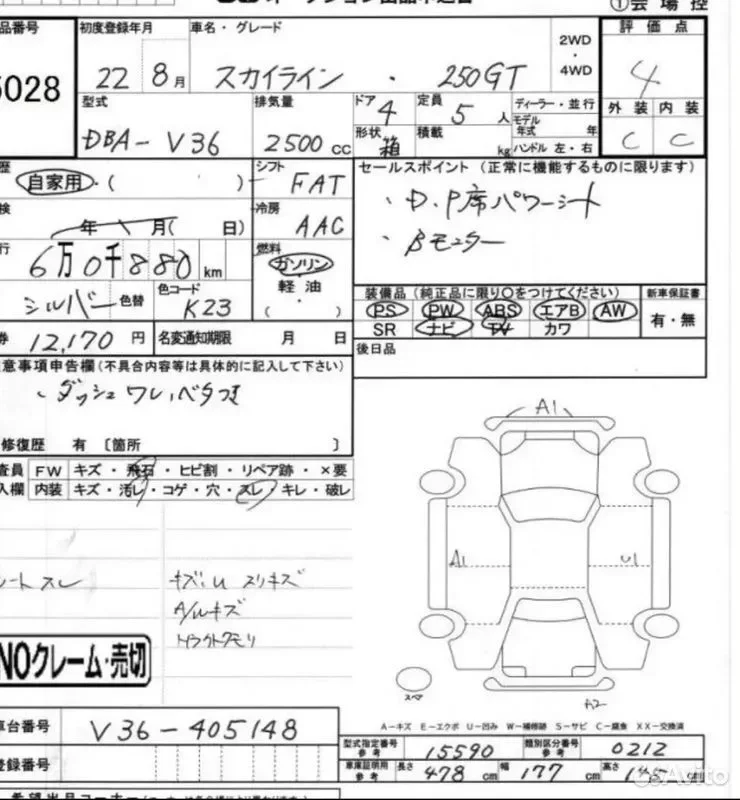 ①会場控
品番号 初度登録年月 車名・グレード 評価点
5028 22 8月 スカイライン ・ 250GT 2WD ・ 4WD 4
型式 排気量 ドア 4 定員 5人 ディーラー・並行 外装 内装
DBA-V36 2500cc 形状 箱 積載 kg モデル年式 年 C C
ハンドル 左・右
歴 シフト セールスポイント(正常に機能するものに限ります)
自家用・( ) FAT ・D.P席パワーシート
検 冷房
年 月( 日) AAC ・Bモニター
行 燃料
6万0千880km ガソリン
軽油
・
( )
シルバー 色替 色コード K23
装備品(純正品に限り○をつけてください) 新車保証書
PS PW ABS エアB AW 有・無
SR ナビ TV カワ
券 12,170円 名変通知期限 月 日
後日品
意事項申告欄(不具合内容等は具体的に記入して下さい)
・ダッシュワレ、ベタつき
修復歴 有〔箇所 〕
査員 FW キズ・飛石・ヒビ割・リペア跡・×要
入欄 内装 キズ・汚レ・コゲ・穴・スレ・キレ・破レ
A1
A1 U1
シートスレ キズ;U スリキズ
A/Wキズ
NOクレーム・売切
スペア
A2
A-キズ E-エクボ U-凹み W-補修跡 S-サビ C-腐食 XX-交換済
車台番号 V36-405148
型式指定番号 参考 15590 類別区分番号 参考 0212
登録番号
車庫証明用 参考 長さ 478cm 幅 177cm 高さ cm
Avito